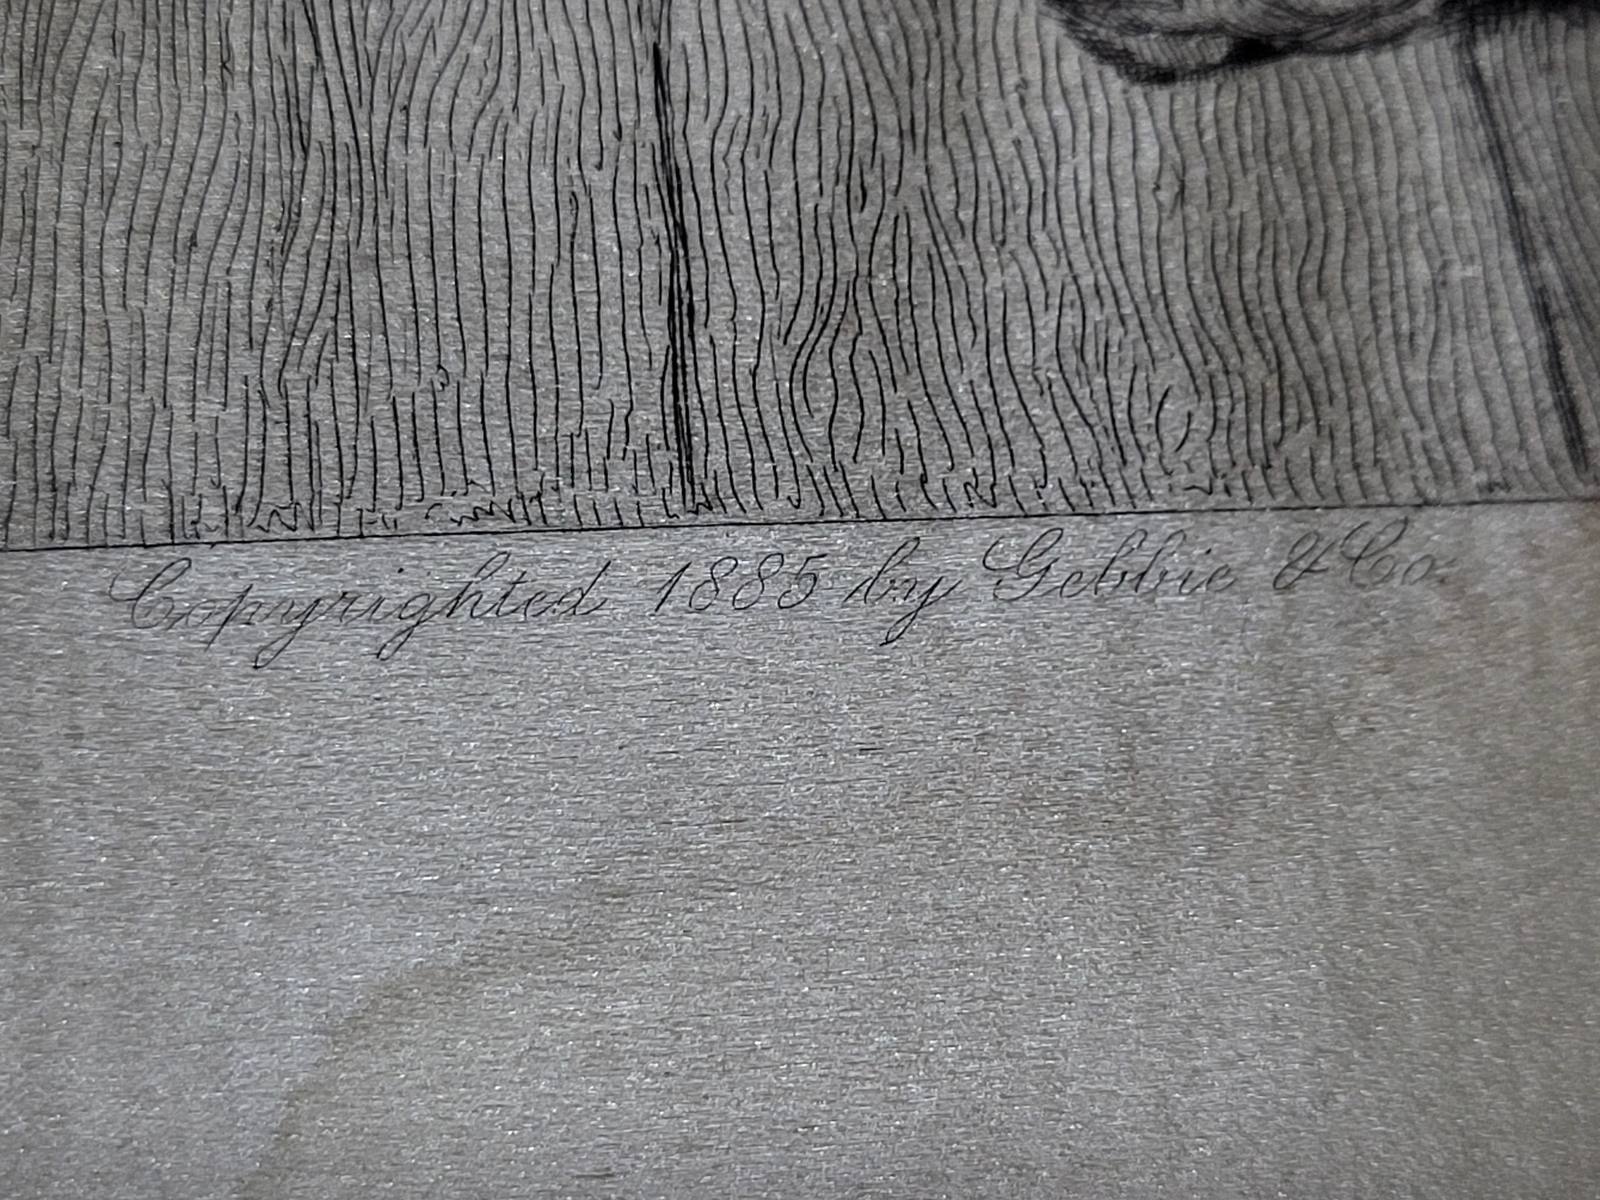 Copyrighted 1885 by Gebbie & Co